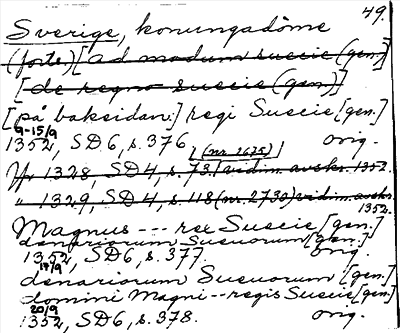 49.
Sverige, konungadöme
(forts.) [ad modum suecie (gen.)]
[de regno suecie (gen.)]
[på baksidan:] regi Suecie [gen.]
9-15/9
1352, SD6, s. 376 orig.
(nr. 2625)
Jfr 1328, SD4, s. 73 vidim. avskr. 1352.
" 1329, SD4, s. 118 (nr. 2730) vidim. avskr.
1352.
Magnus --- rex Suecie [gen.]
denariorum Sueuorum [gen.]
1352, SD6, s. 377. orig.
19/9
denariorum Sueuorum [gen.]
domini Magni -- regis Suecie [gen.]
20/9
1352, SD6, s. 378. orig.